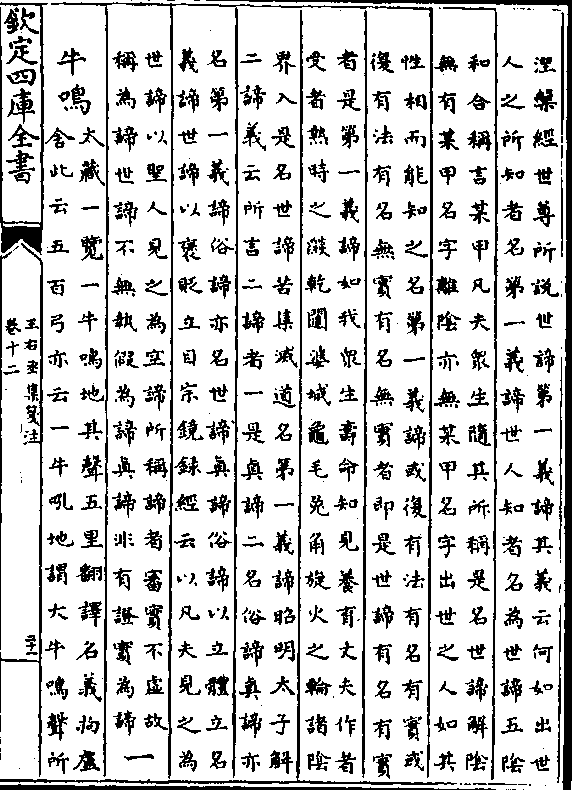 涅槃經世尊所説世諦第一義諦其義云何如出世
人之所知者名第一義諦世人知者名為世諦五陰
和合稱言某甲凡夫衆生隨其所稱是名世諦解陰
無有某甲名字離陰亦無某甲名字出世之人如其
性相而能知之名第一義諦或復有法有名有實或
復有法有名無實有名無實者即是世諦有名有實
者是第一義諦如我衆生壽命知見養育丈夫作者
受者熱時之燄乾闥婆城龜毛兎角旋火之輪諸陰
界入是名世諦苦集滅道名第一義諦昭明太子解
二諦義云所言二諦者一是真諦二名俗諦真諦亦
名第一義諦俗諦亦名世諦真諦俗諦以立體立名
義諦世諦以褒貶立目宗鏡録經云以凡夫見之為
世諦以聖人見之為空諦所稱諦者審實不虚故
稱為諦世諦不無執假為諦真諦非有證實為諦
一
牛鳴
太藏一覽一牛鳴地其聲五里翻譯名義拘盧
舍此云五百弓亦云一牛吼地謂大牛鳴聲所
欽定四庫全書
王右丞集箋注
卷十二